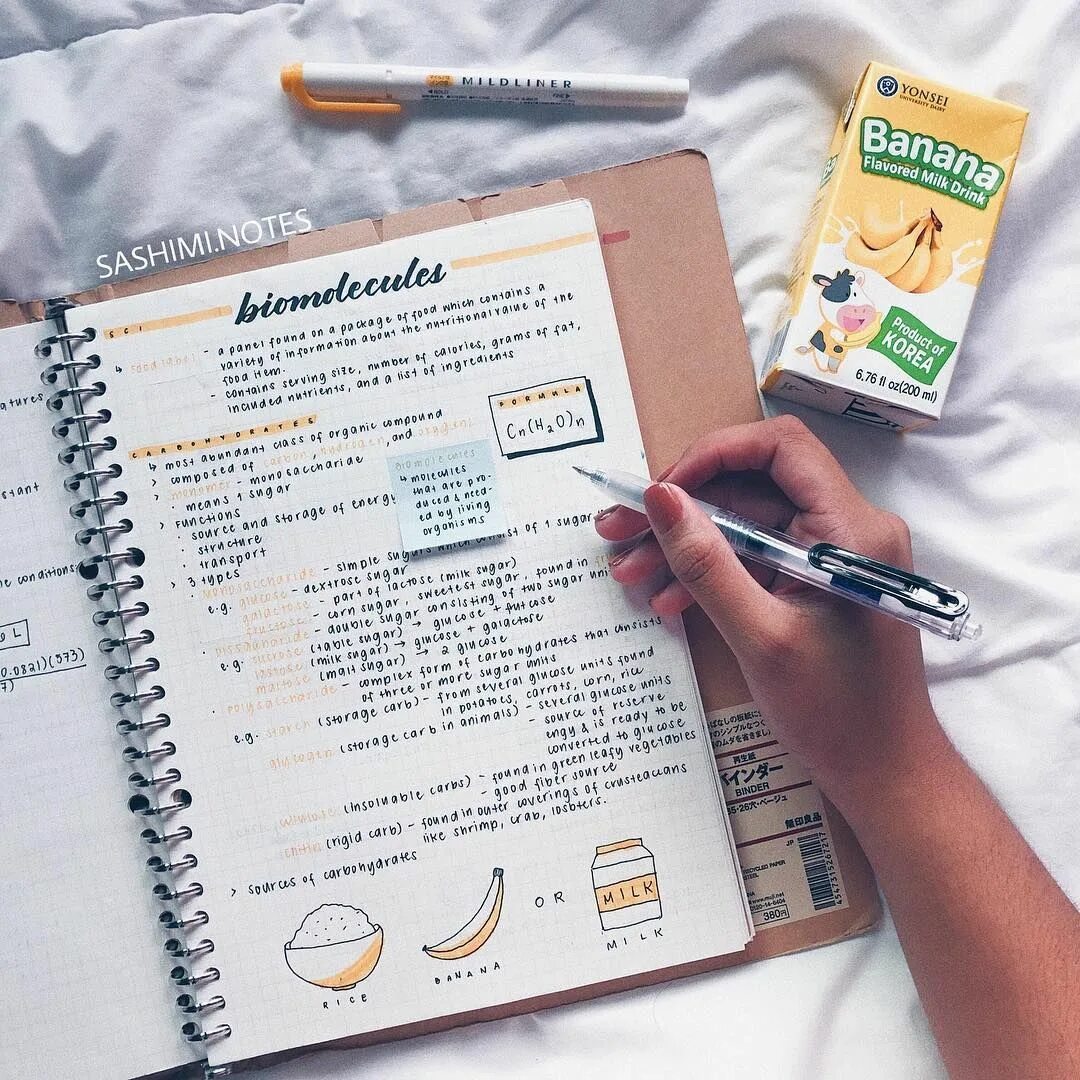 MILDLINER
YONSEI
UNIVERSITY DAIRY
Banana
Flavored Milk Drink
Product of
KOREA
6.76 fl oz(200 ml)
SASHIMI.NOTES
biomolecules
SCI
↳ food label - a panel found on a package of food which contains a
variety of information about the nutritional value of the
food item.
- contains serving size, number of calories, grams of fat,
included nutrients, and a list of ingredients
FORMULA
Cn(H2O)n
CARBOHYDRATES
↳ most abundant class of organic compound
> composed of carbon, hydrogen, and oxygen.
> monomer - monosaccharide
· means 1 sugar
> Functions
· source and storage of energy
· structure
· transport
biomolecules
↳ molecules
that are pro-
duced & need-
ed by living
organisms
> 3 types
· monosaccharide - simple sugars which consist of 1 sugar
e.g. glucose - dextrose sugar
galactose - part of lactose (milk sugar)
fructose - corn sugar, sweetest sugar, found in
· dissaharide - double sugar consisting of two sugar uni
e.g. sucrose (table sugar) → glucose + fructose
lactose (milk sugar) → glucose + galactose
maltose (malt sugar) → 2 glucose
· polysaccharide - complex form of carbohydrates that consists
of three or more sugar units
e.g. starch (storage carb) - from several glucose units found
in potatoes, carrots, corn, rice
glycogen (storage carb in animals) - several glucose units
- source of reserve
engy & is ready to be
converted to glucose
(insoluable carbs) - found in green leafy vegetables
- good fiber source
chitin (rigid carb) - found in outer coverings of crusteacans
like shrimp, crab, losbters.
> Sources of carbohydrates
RICE
BANANA
OR
MILK
MILK
atures
stant
e conditions
OL
0.0821)(373)
再生紙
バインダー
BINDER
無印良品
JP
RECYCLED PAPER
STEEL
www.muji.net
380円
4547315267217